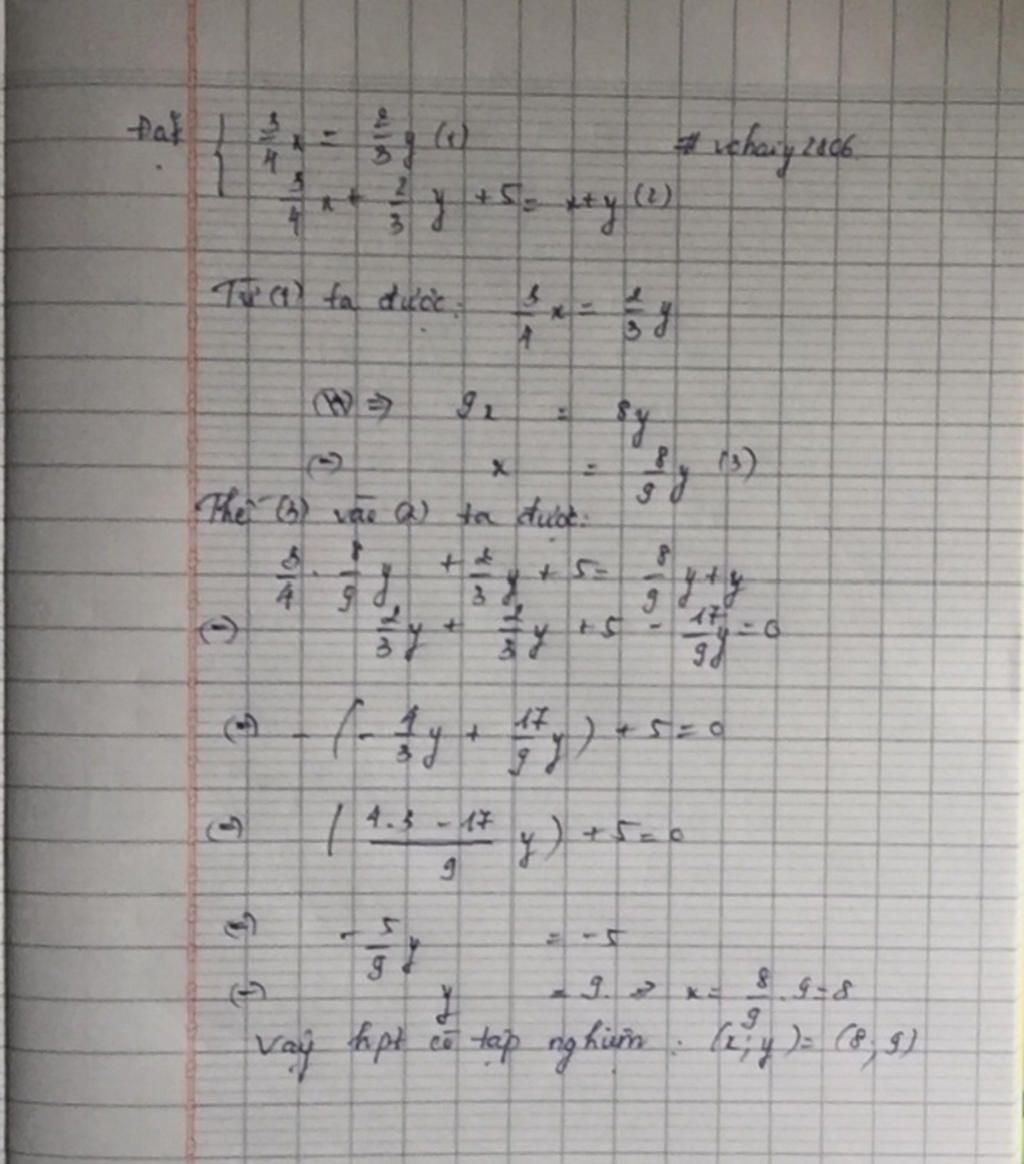 Đặt { 3/4 x = 2/3 y (1) # vchaiy2106
3/4 x + 2/3 y + 5 = x + y (2)
Từ (1) ta được: 3/4 x = 2/3 y
⇒ 9x = 8y
(=) x = 8/9 y (3)
Thế (3) vào (2) ta được:
3/4 . 8/9 y + 2/3 y + 5 = 8/9 y + y
(=) 2/3 y + 2/3 y + 5 - 17/9 y = 0
(=) - (- 4/3 y + 17/9 y) + 5 = 0
(=) (4.3 - 17 / 9 y) + 5 = 0
(=) - 5/9 y = -5
(=) y = 9 ⇒ x = 8/9 . 9 = 8
Vậy hpt có tập nghiệm : (x; y) = (8; 9)